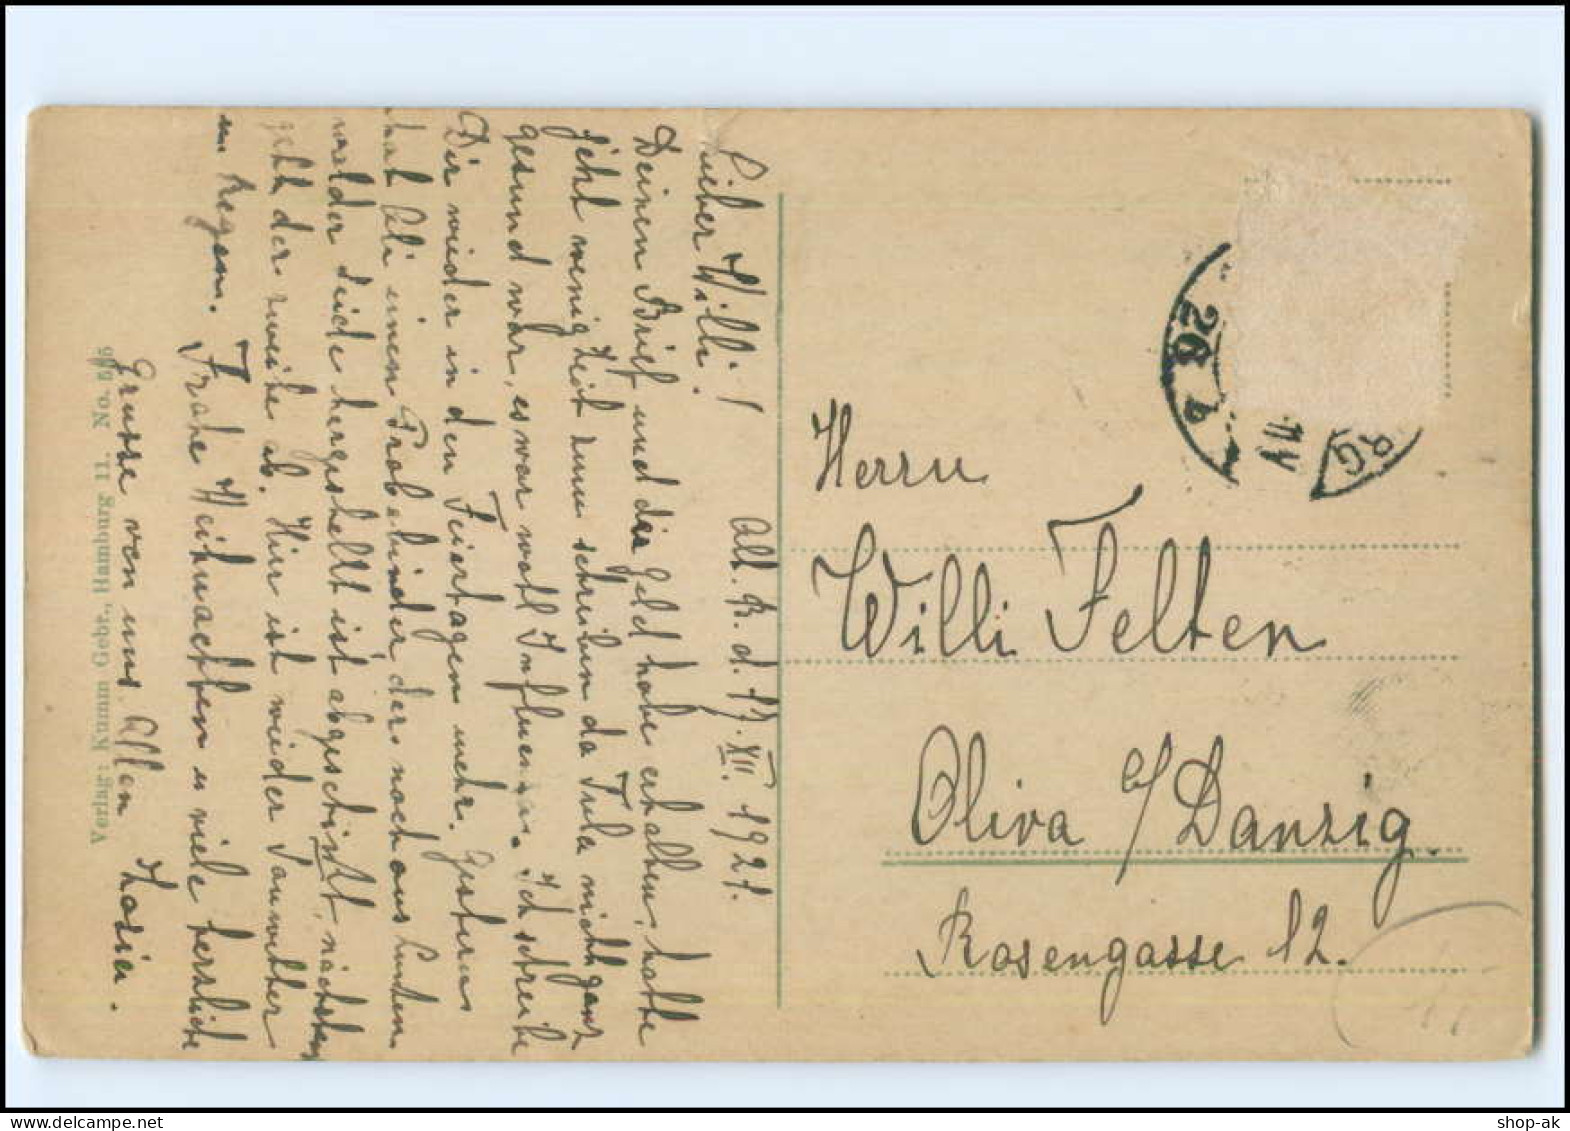 Alt. R. d. 17. XII. 1921.
Lieber Willi!
Deinen Brief und das Geld habe erhalten, hatte
jetzt wenig Zeit zum schreiben da Tula nicht ganz
gesund war, es war wohl Influenza. Ich schreibe
Dir wieder in den Feiertagen mehr. Gestern
hat Ali einen Probebinder, der noch aus
welcher Seide hergestellt ist abgeschickt, nächstens
geht der zweite ab. Hier ist wieder Sauwetter
Regen. Frohe Weihnachten u viele herzliche
Grüsse von uns Allen
Verlag: Kumm Gebr., Hamburg 11. No.
Herrn
Willi Felten
Oliva b/Danzig.
Rosengasse 12.
RG
shop-ak